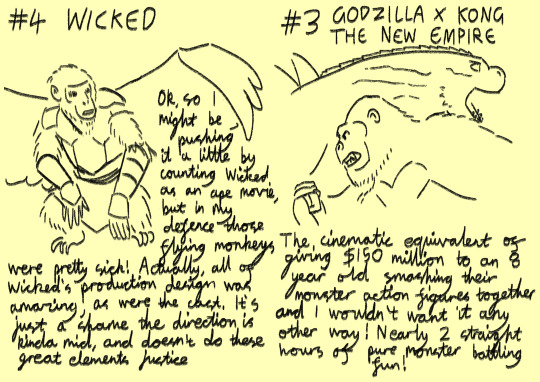 #4 WICKED
Ok, so I
might be
pushing
it a little by
counting Wicked
as an ape movie,
but in my
defence those
flying monkeys
were pretty sick! Actually, all of
Wicked's production design was
amazing, as were the cast, It's
just a shame the direction is
kinda mid, and doesn't do these
great elements justice
#3 GODZILLA X KONG
THE NEW EMPIRE
The cinematic equivalent of
giving $150 million to an 8
year old smashing their
monster action figures together
and I wouldn't want it any
other way! Nearly 2 straight
hours of pure monster battling
fun!